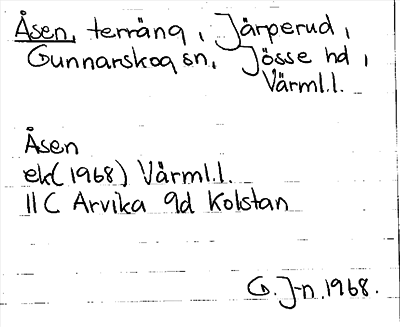 Åsen, terräng, Järperud,
Gunnarskog sn, Jösse hd,
Värml.l.
Åsen
ek(1968) Värml.l.
11 C Arvika 9d Kolstan
G. J-n. 1968.